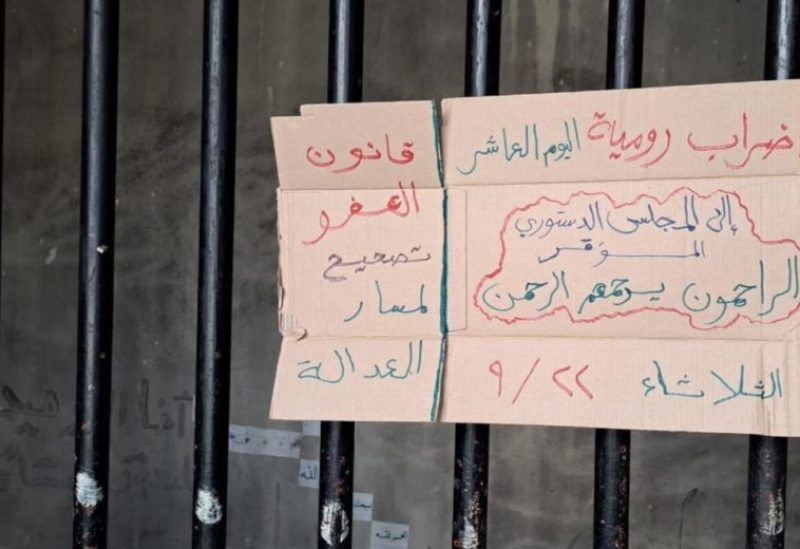 إضراب رومية اليوم العاشر
إلى المجلس الدستوري
الموقر
الراحمون يرحمهم الرحمن
الثلاثاء ٢٢/٩
قانون
العفو
تصحيح
لمسار
العدالة
الله
الحمد لله